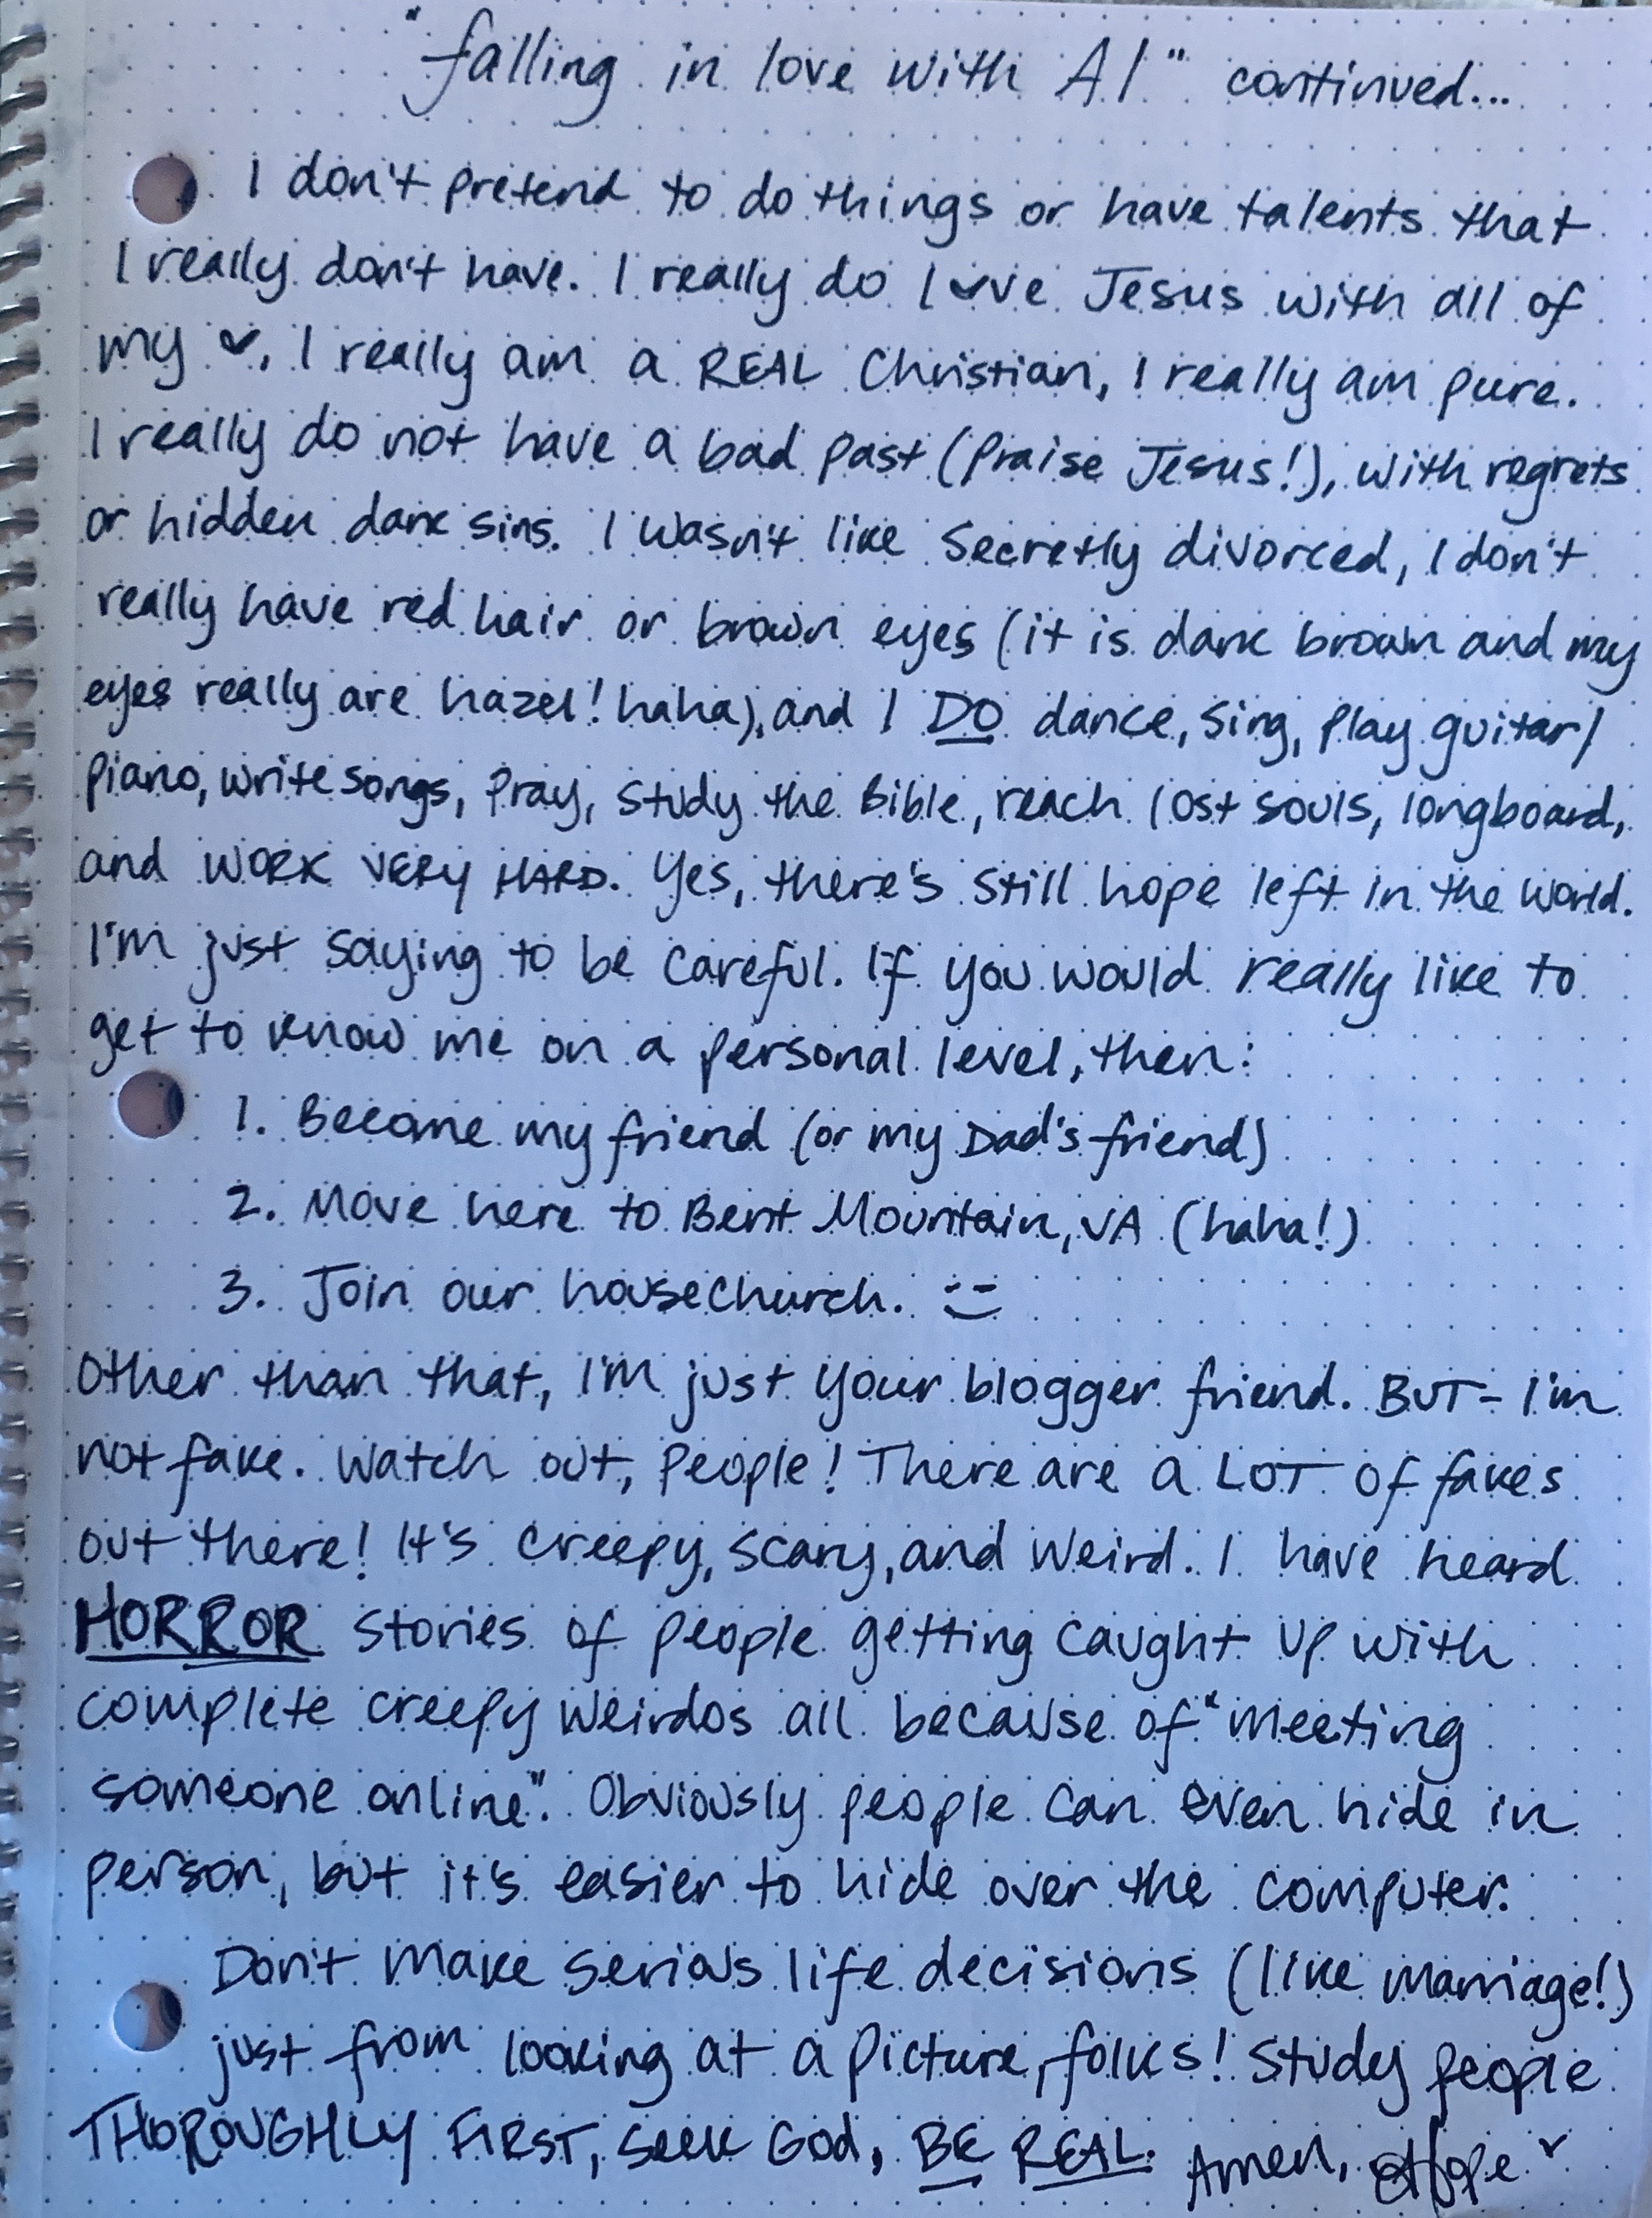 "falling in love with AI" continued...
I don't pretend to do things or have talents that
I really don't have. I really do love Jesus with all of
my ♥. I really am a REAL Christian, I really am pure.
I really do not have a bad past (Praise Jesus!), with regrets
or hidden dark sins. I wasn't like secretly divorced, I don't
really have red hair or brown eyes (it is dark brown and my
eyes really are hazel! haha), and I DO dance, sing, play guitar/
piano, write songs, pray, study the Bible, reach lost souls, longboard,
and WORK VERY HARD. Yes, there's still hope left in the world.
I'm just saying to be careful. If you would really like to
get to know me on a personal level, then:
1. Become my friend (or my Dad's friend)
2. Move here to Bent Mountain, VA (haha!)
3. Join our housechurch. :)
Other than that, I'm just your blogger friend. BUT- I'm
not fake. Watch out, people! There are a LOT of fakes
out there! It's creepy, scary, and weird. I have heard
HORROR stories of people getting caught up with
complete creepy weirdos all because of "meeting
someone online". Obviously people can even hide in
person, but it's easier to hide over the computer.
Don't make serious life decisions (like marriage!)
just from looking at a picture, folks! Study people
THOROUGHLY FIRST, seek God, BE REAL. Amen, Hope ♥